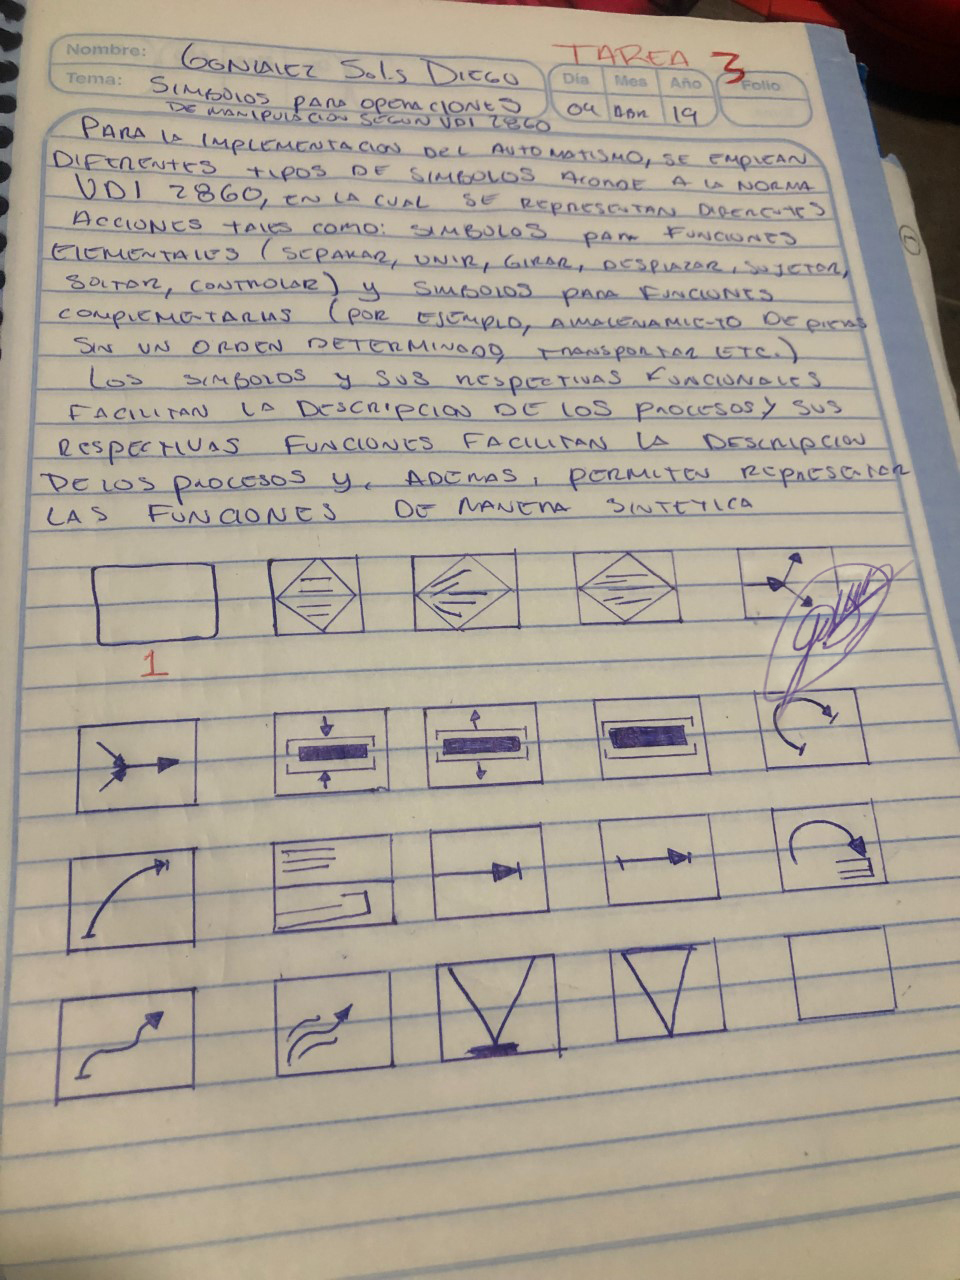 TAREA 3
Nombre: GONZALEZ SOLIS DIEGO
Día Mes Año Folio
Tema: SIMBOLOS PARA OPERACIONES
DE MANIPULACION SEGUN VDI 2860
04 ABR 19
PARA LA IMPLEMENTACION DEL AUTOMATISMO, SE EMPLEAN
DIFERENTES TIPOS DE SIMBOLOS ACORDE A LA NORMA
VDI 2860, EN LA CUAL SE REPRESENTAN DIFERENTES
ACCIONES TALES COMO: SIMBOLOS PARA FUNCIONES
ELEMENTALES (SEPARAR, UNIR, GIRAR, DESPLAZAR, SUJETAR,
SOLTAR, CONTROLAR) Y SIMBOLOS PARA FUNCIONES
COMPLEMENTARIAS (POR EJEMPLO, AMACENAMIENTO DE PIEZAS
SIN UN ORDEN DETERMINADO, TRANSPORTAR ETC.)
LOS SIMBOLOS Y SUS RESPECTIVAS FUNCIONALES
FACILITAN LA DESCRIPCION DE LOS PROCESOS Y SUS
RESPECTIVAS FUNCIONES FACILITAN LA DESCRIPCION
DE LOS PROCESOS Y, ADEMAS, PERMITEN REPRESENTAR
LAS FUNCIONES DE MANERA SINTETICA
1